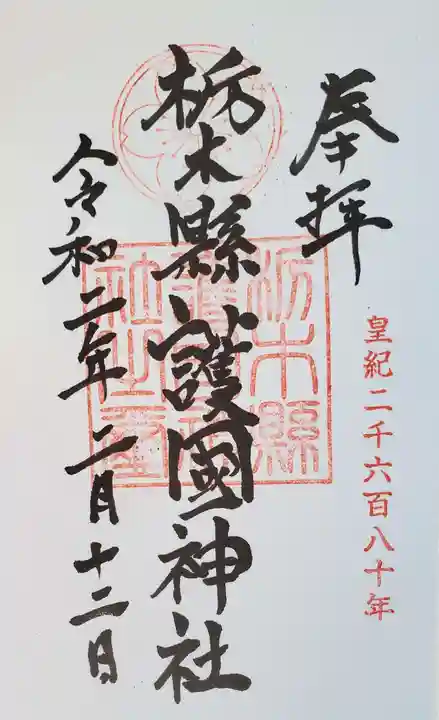 奉拝
皇紀二千六百八十年
栃木縣護國神社
令和二年二月十二日
栃木縣
護國神
社之璽